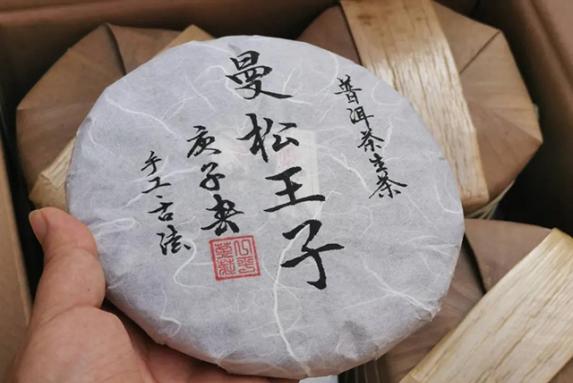 普洱茶生茶
曼松王子
庚子春
手工古法